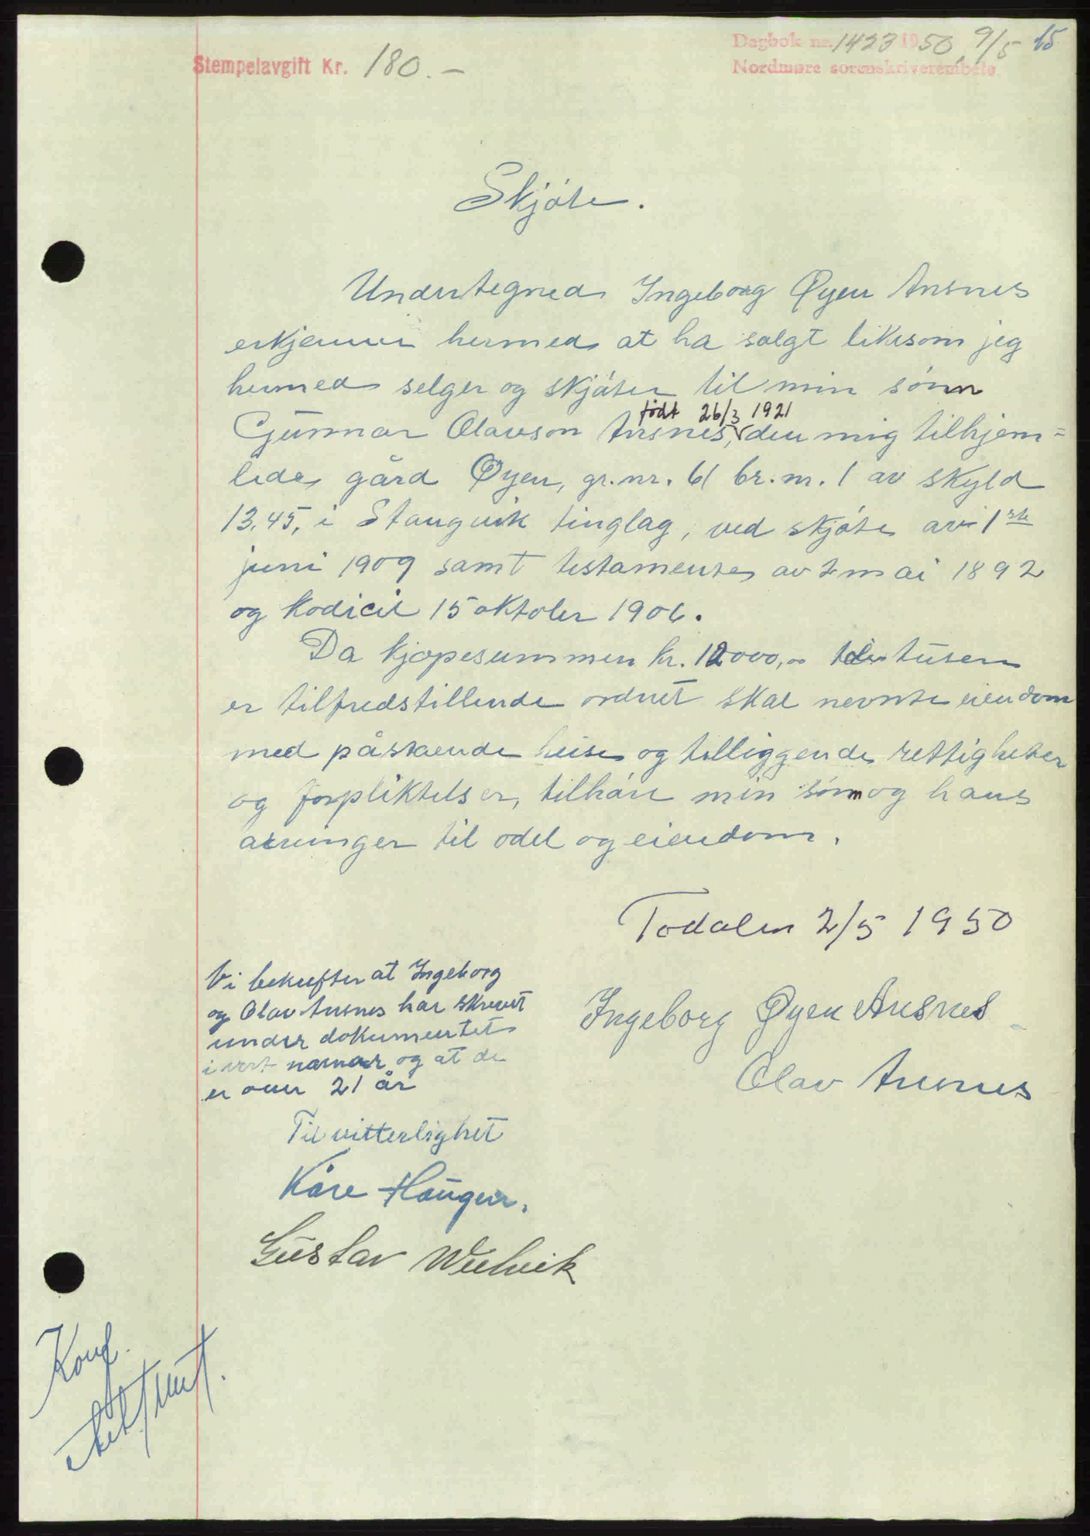 Stempelavgift Kr. 180.-
Dagbok nr. 1423 1950, 9/5 15
Nordmøre sorenskriverembete
Skjøte.
Undertegnede Ingeborg Øyen Ansnes
erkjenner hermed at ha solgt liksom jeg
hermed selger og skjøter til min sønn
født 26/3 1921
Gunnar Olavson Ansnes, den mig tilhjem=
lede gård Øyen, gr.nr. 61 br.nr. 1 av skyld
13,45, i Stangvik tinglag, ved skjøte av 1ste
juni 1909 samt testamente av 2 mai 1892
og kodicil 15 oktober 1906.
Da kjøpesummen kr. 12000,00 tusen
er tilfredstillende ordnet skal nevnte eiendom
med påstående huse og tilliggende rettigheter
og forpliktelser, tilhøre min sønn og hans
arvinger til odel og eiendom.
Todalen 2/5 1950
Vi bekrefter at Ingeborg
og Olav Ansnes har skrevet
under dokumentet
i vort nærvær og at de
er over 21 år
Ingeborg Øyen Ansnes
Olav Ansnes
Til vitterlighet
Kåre Haugen.
Gustav Wullvik
Konf.